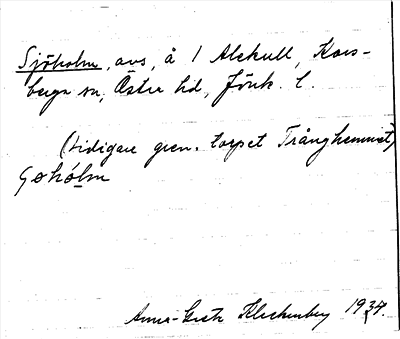 Sjöholm, avs, å 1 Alekull, Kors-
berga sn, Östra hd, Jönk. l.
(tidigare gren. torpet Trånghemmet)
Anna-Greta Kleckenberg 1934.